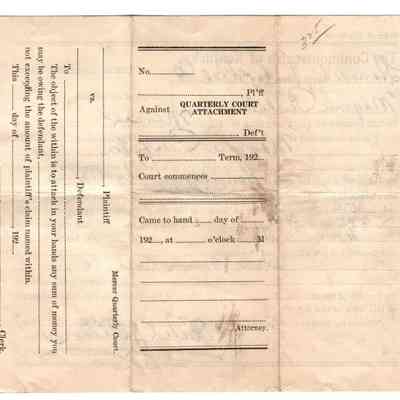 325
No.
, Pl'ff
Against QUARTERLY COURT
ATTACHMENT
Def't
To Term, 192
Court commences
Came to hand day of
192, at o'clock M
Attorney.
Mercer Quarterly Court.
Plaintiff
vs.
, Defendant
To
The object of the within is to attach in your hands any sum of money you
may be owing the defendant,
not exceeding the amount of plaintiff's claim named within.
This day of , 192
Clerk.